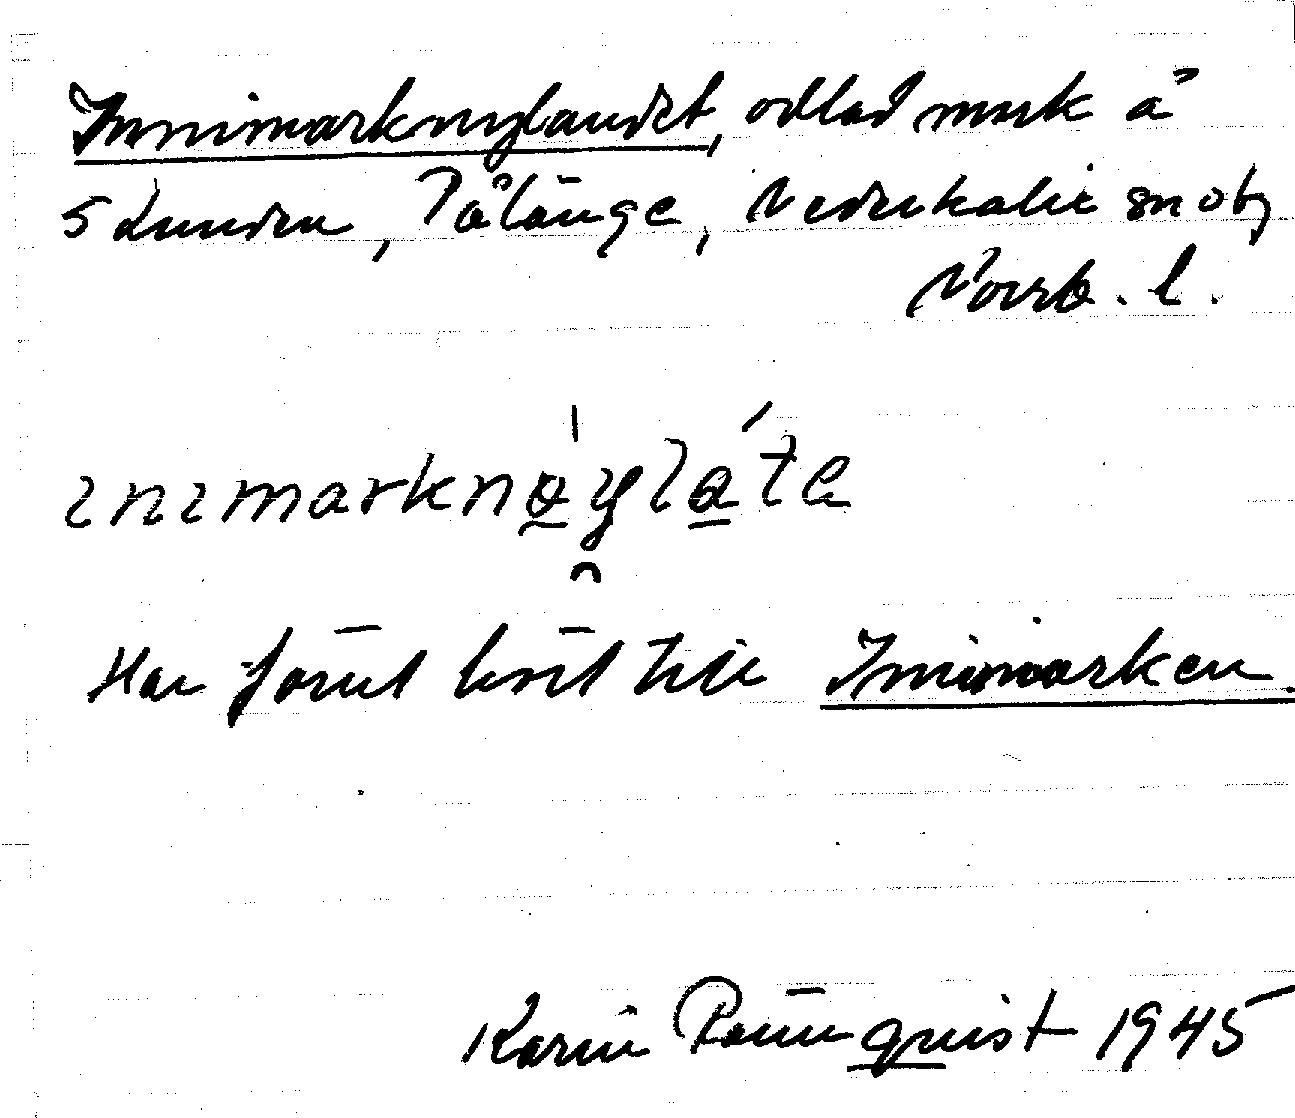 Innimarknylandet, odlad mark å
S Lunden, Pålänge, Nederkalix sn o by
Norrb. l.
ınımarknøylate
Har förut hört till Innimarken.
Karin Rönnquist 1945